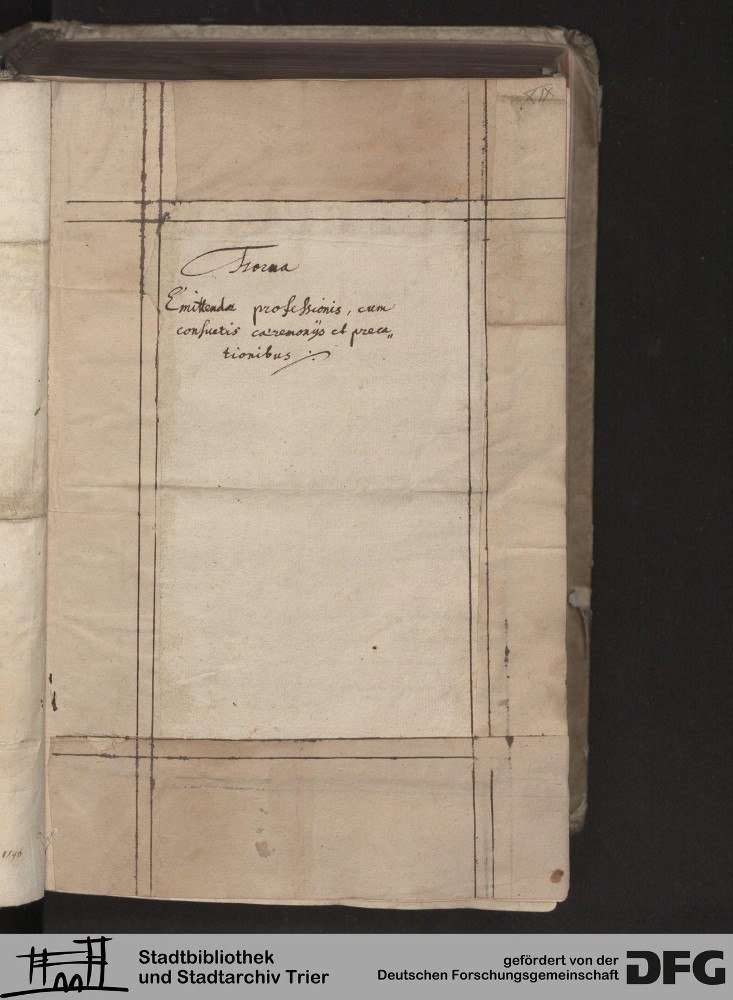 XIX
Forma
Emittendæ professionis, cum
consuetis cæremonijs et preca„
tionibus
1596
Stadtbibliothek
und Stadtarchiv Trier
gefördert von der
Deutschen Forschungsgemeinschaft
DFG